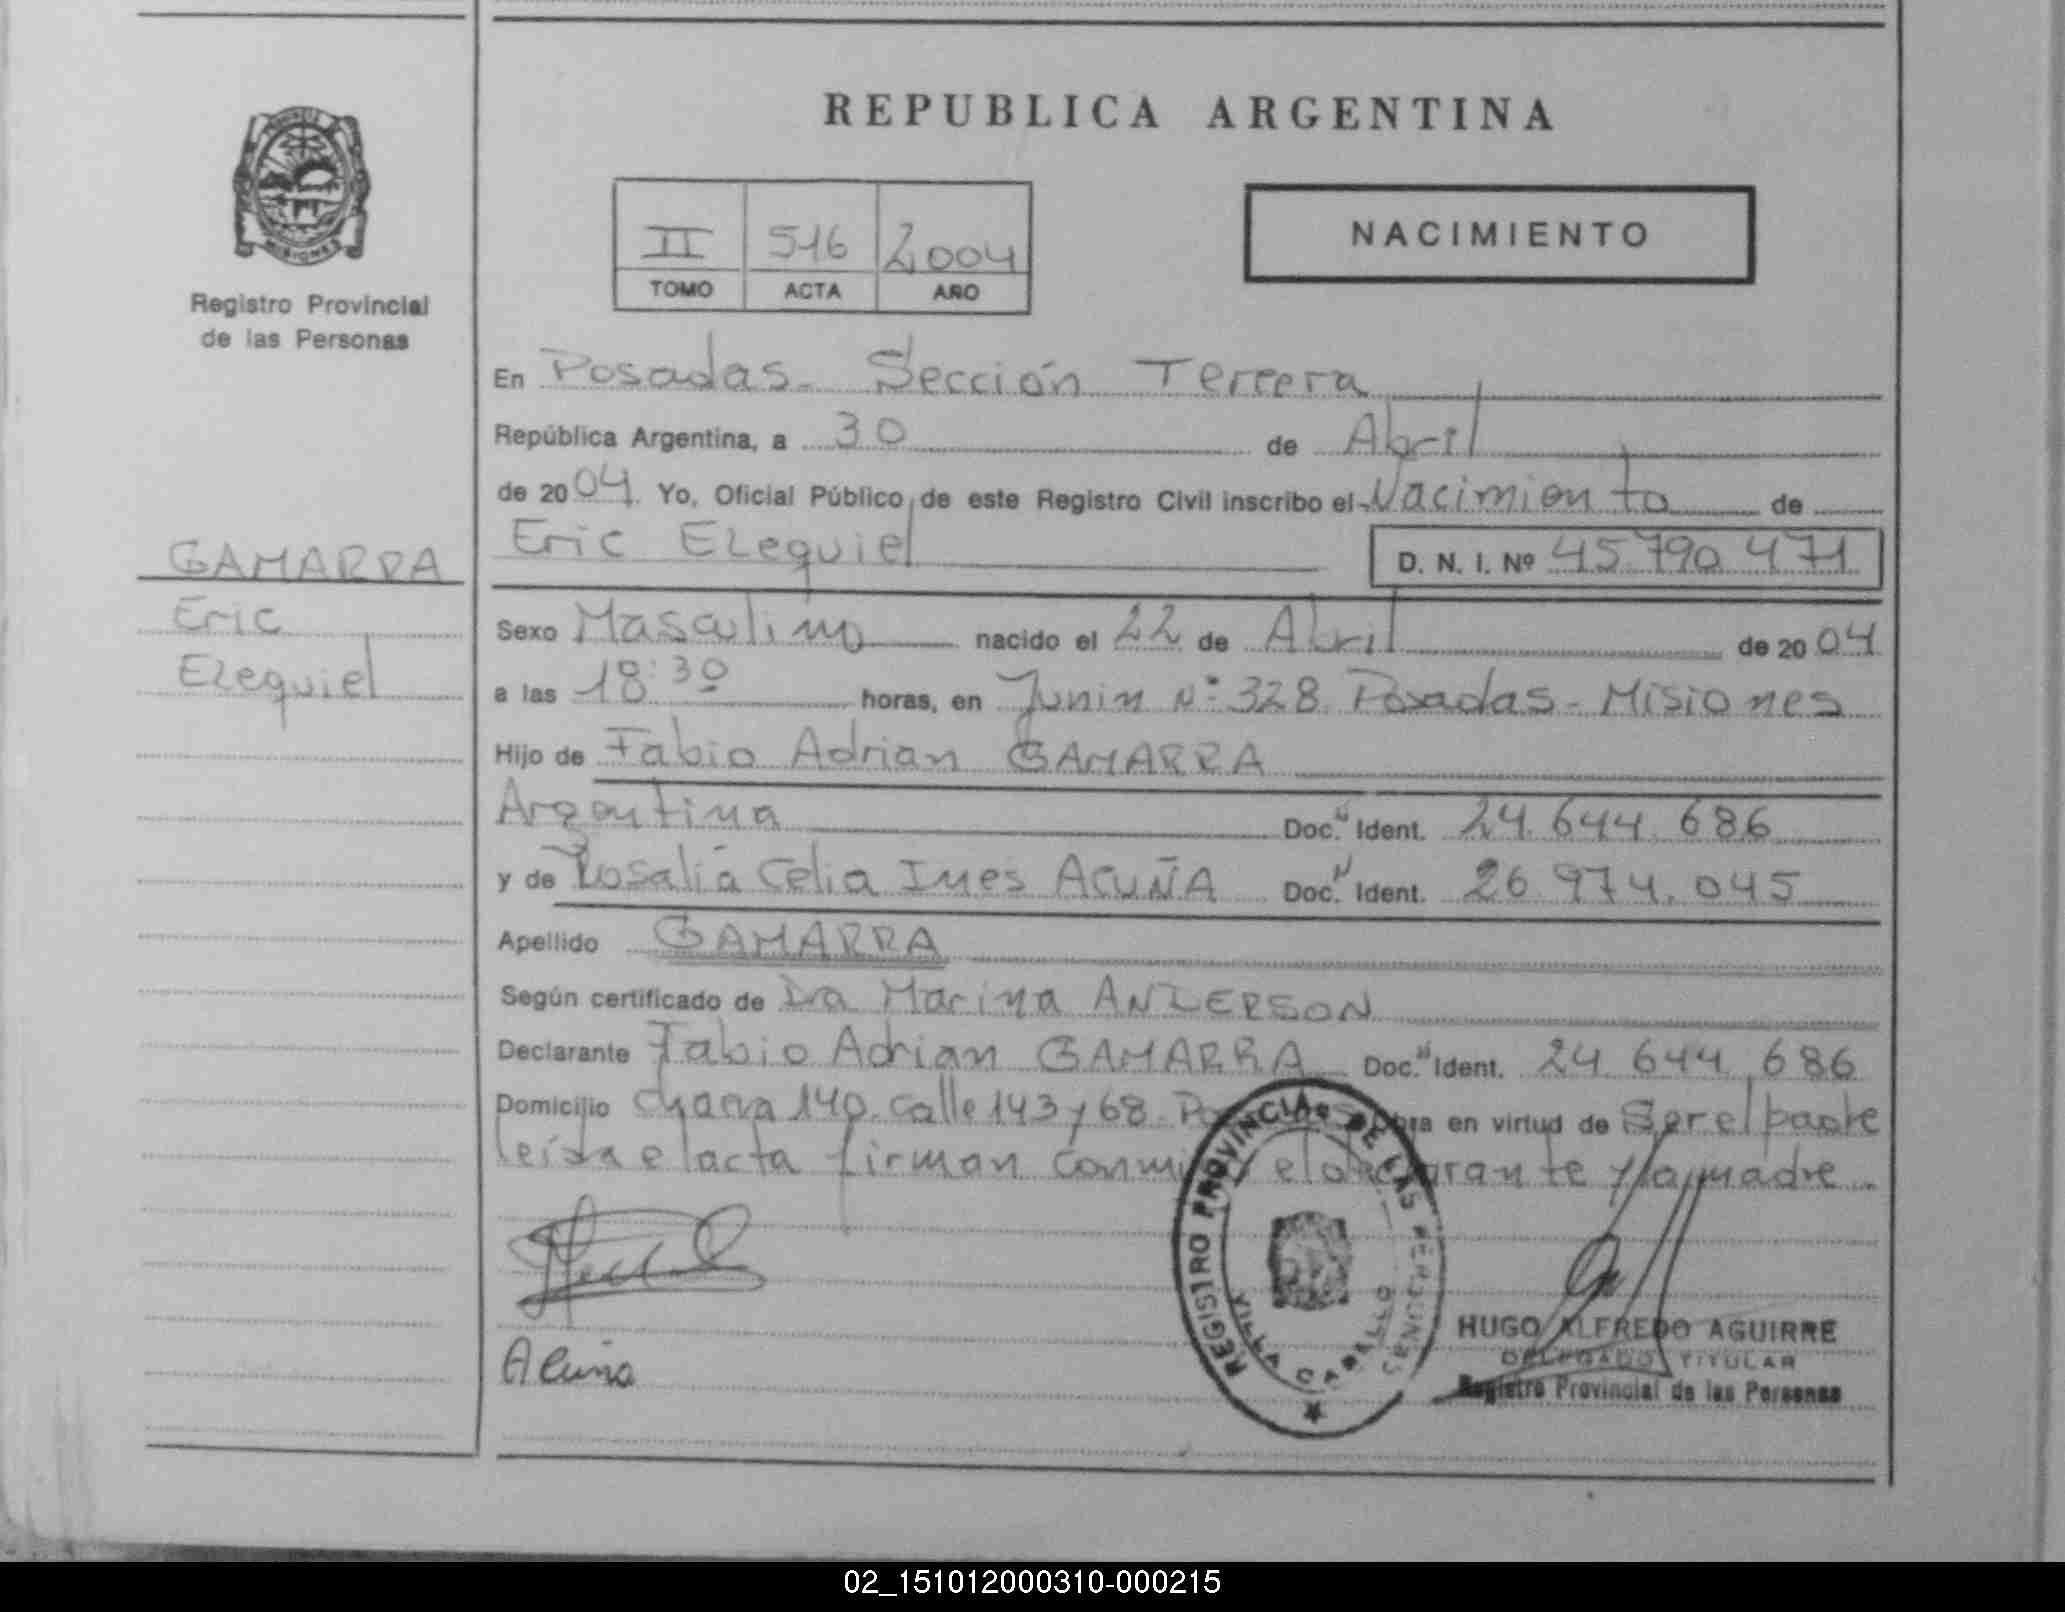 REPUBLICA ARGENTINA
PROVINCIA DE MISIONES
Registro Provincial
de las Personas
II 516 2004
TOMO ACTA AÑO
NACIMIENTO
En Posadas- Sección Tercera
República Argentina, a 30 de Abril
de 2004. Yo, Oficial Público de este Registro Civil inscribo el Nacimiento de
Eric Ezequiel D. N. I. Nº 45.790.471
GAMARRA
Eric
Ezequiel
Sexo Masculino nacido el 22 de Abril de 2004
a las 18:30 horas, en Junin Nº 328 Posadas- Misiones
Hijo de Fabio Adrian GAMARRA
Argentina Doc. N Ident. 24.644.686
y de Rosalia Celia Ines ACUÑA Doc. N Ident. 26.974.045
Apellido GAMARRA
Según certificado de Dra Marina ANDERSON
Declarante Fabio Adrian GAMARRA Doc. N Ident. 24.644.686
Domicilio chacra 140. calle 143 y 68- Obra en virtud de Ser el padre
leida el acta firman conmigo el declarante y la madre.
Acuña
REGISTRO PROVINCIAL DE LAS PERSONAS
VILLA CABALLO
HUGO ALFREDO AGUIRRE
DELEGADO TITULAR
Registro Provincial de las Personas
02_151012000310-000215